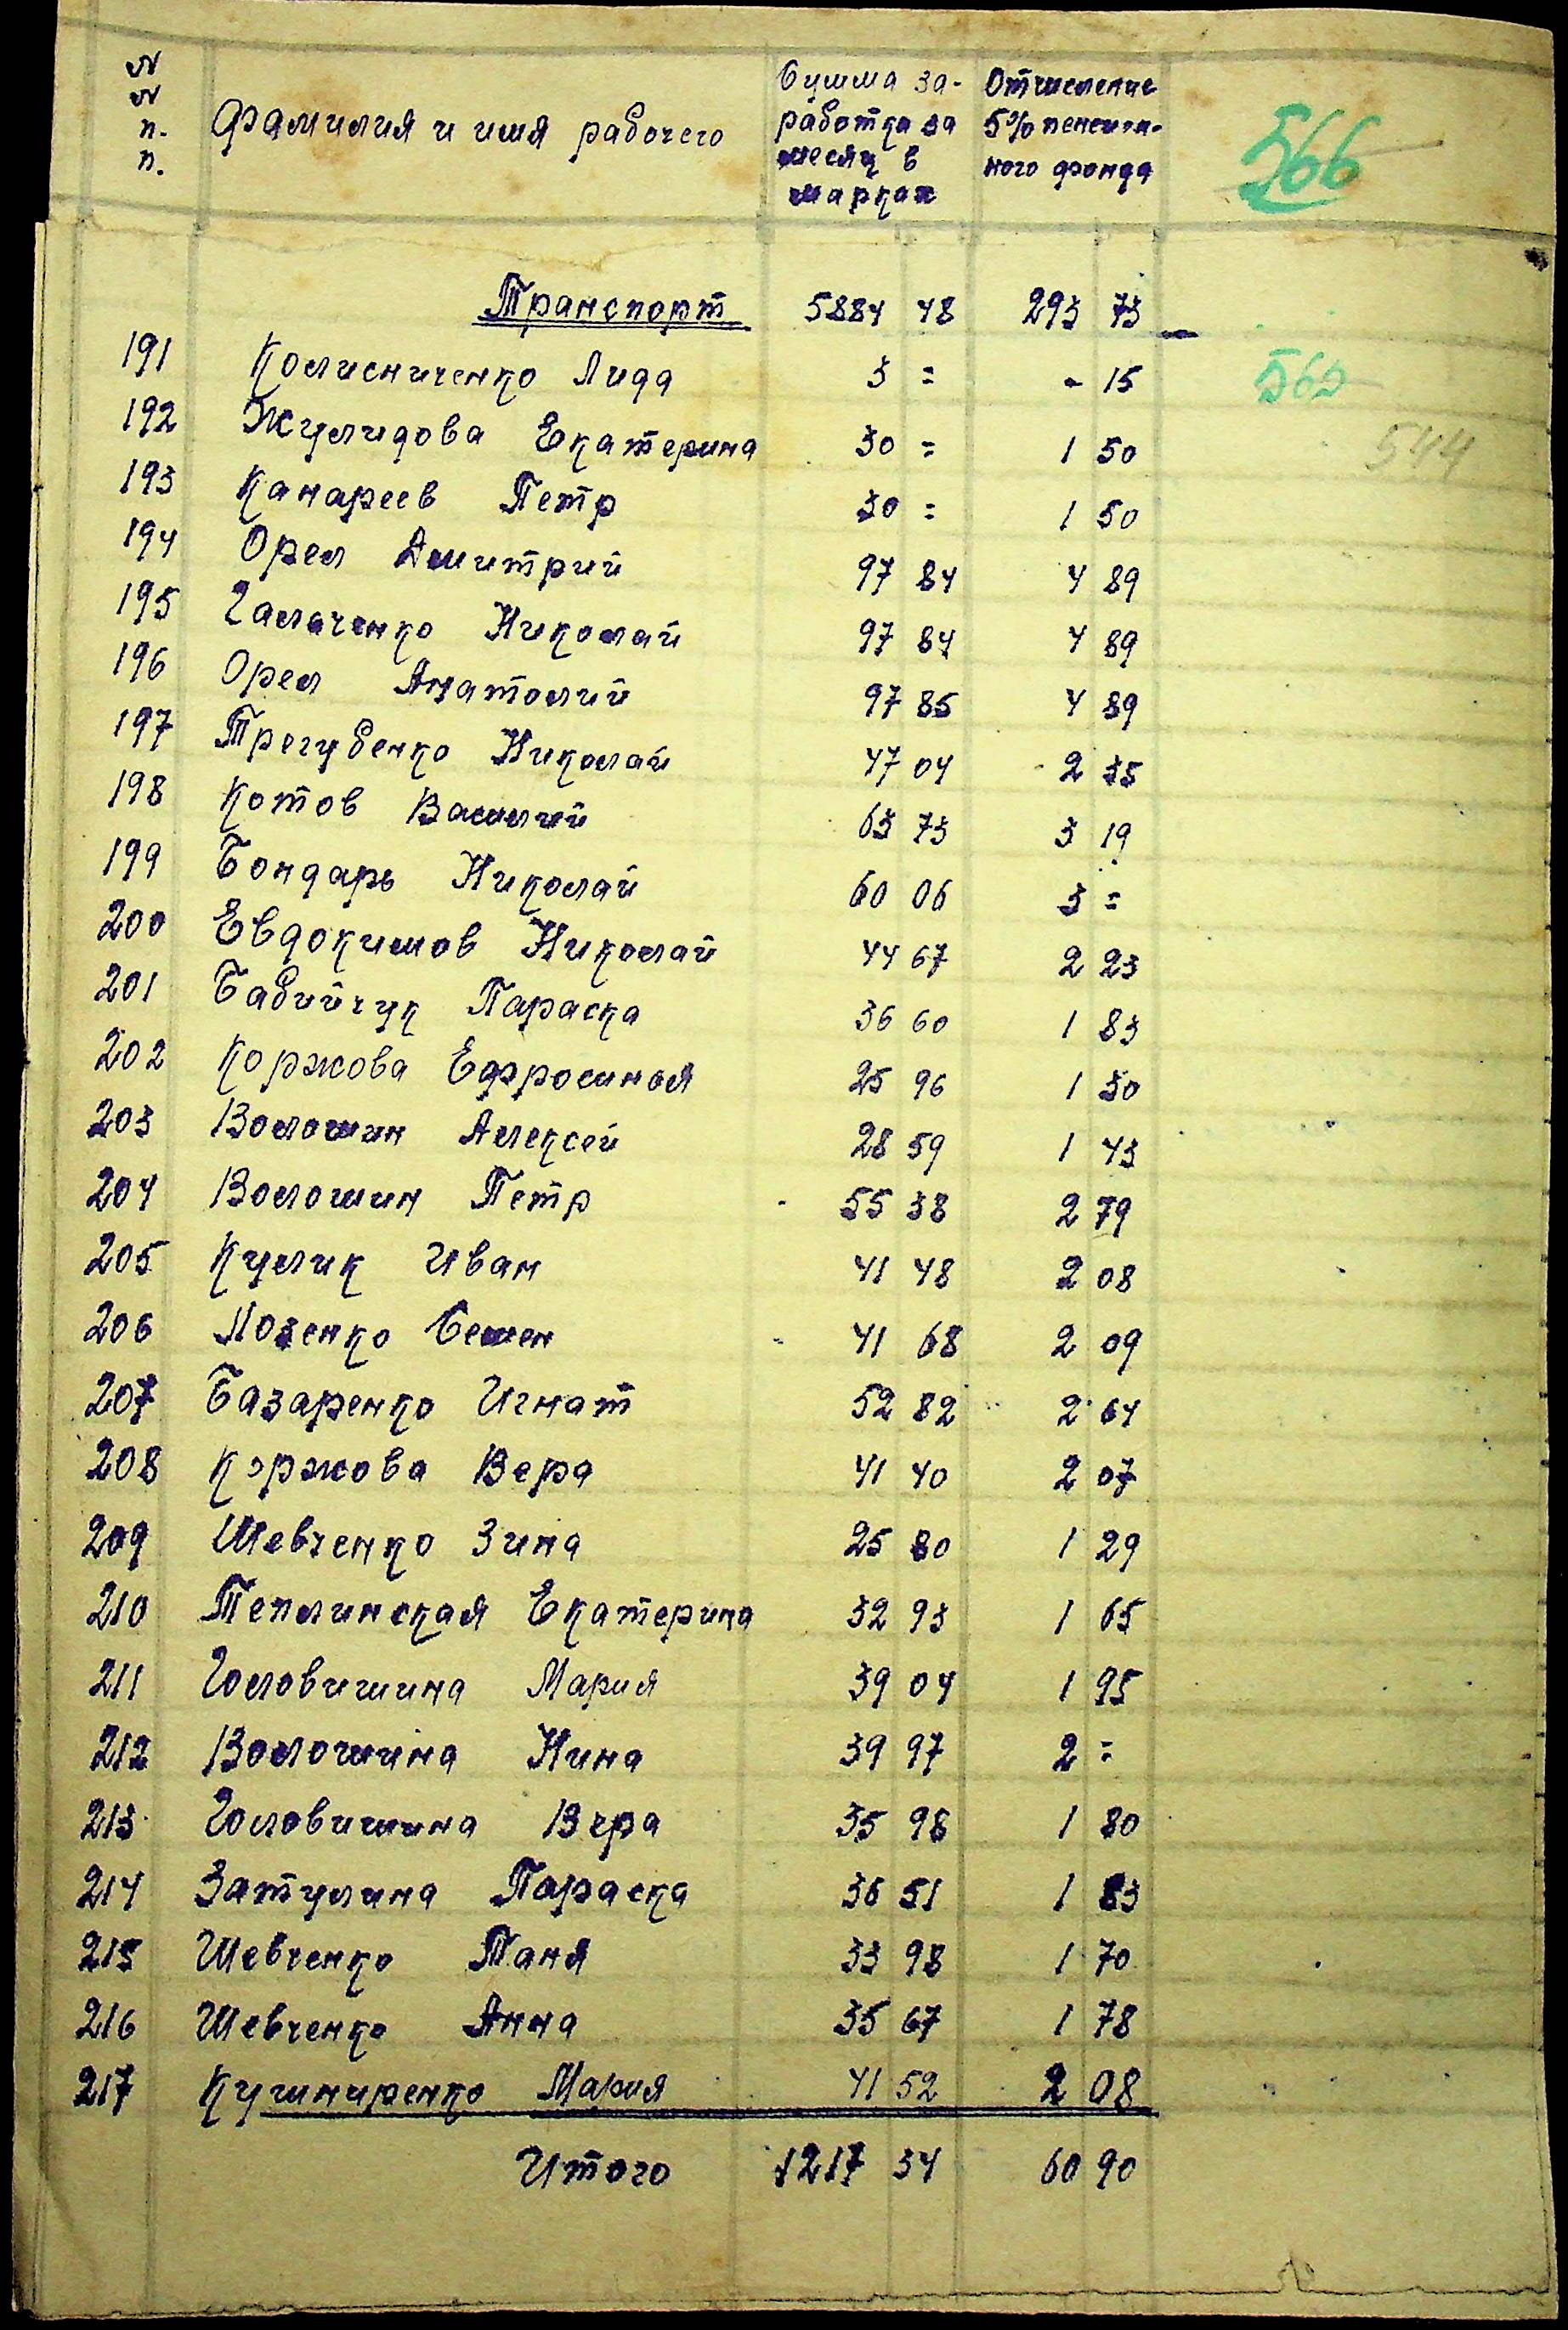 № № п. п. Фамилия и имя рабочего Сумма за- Отчисление
работка за 5% пенсион-
месяц в ного фонда
марках
566
Транспорт 5884 48 293 73
191 Колисниченко Лида 3 = - 15
565
192 Жулидова Екатерина 30 = 1 50
544
193 Канареев Петр 30 = 1 50
194 Орел Дмитрий 97 84 4 89
195 Галаченко Николай 97 84 4 89
196 Орел Анатолий 97 85 4 89
197 Трегубенко Николай 47 04 2 35
198 Котов Василий 63 73 3 19
199 Бондарь Николай 60 06 3 =
200 Евдокимов Николай 44 67 2 23
201 Бабийчук Параска 36 60 1 83
202 Коржова Ефросиния 25 96 1 30
203 Волошин Алексей 28 59 1 43
204 Волошин Петр 55 38 2 79
205 Кулик Иван 41 48 2 08
206 Лозенко Семен 41 68 2 09
207 Базаренко Игнат 52 82 2 64
208 Коржова Вера 41 40 2 07
209 Шевченко Зина 25 80 1 29
210 Теплинская Екатерина 32 93 1 65
211 Головишина Мария 39 04 1 95
212 Волошина Нина 39 97 2 =
213 Головишина Вера 35 98 1 80
214 Затулина Параска 36 51 1 83
215 Шевченко Таня 33 98 1 70
216 Шевченко Анна 35 67 1 78
217 Кушниренко Мария 41 52 2 08
Итого 1217 34 60 90